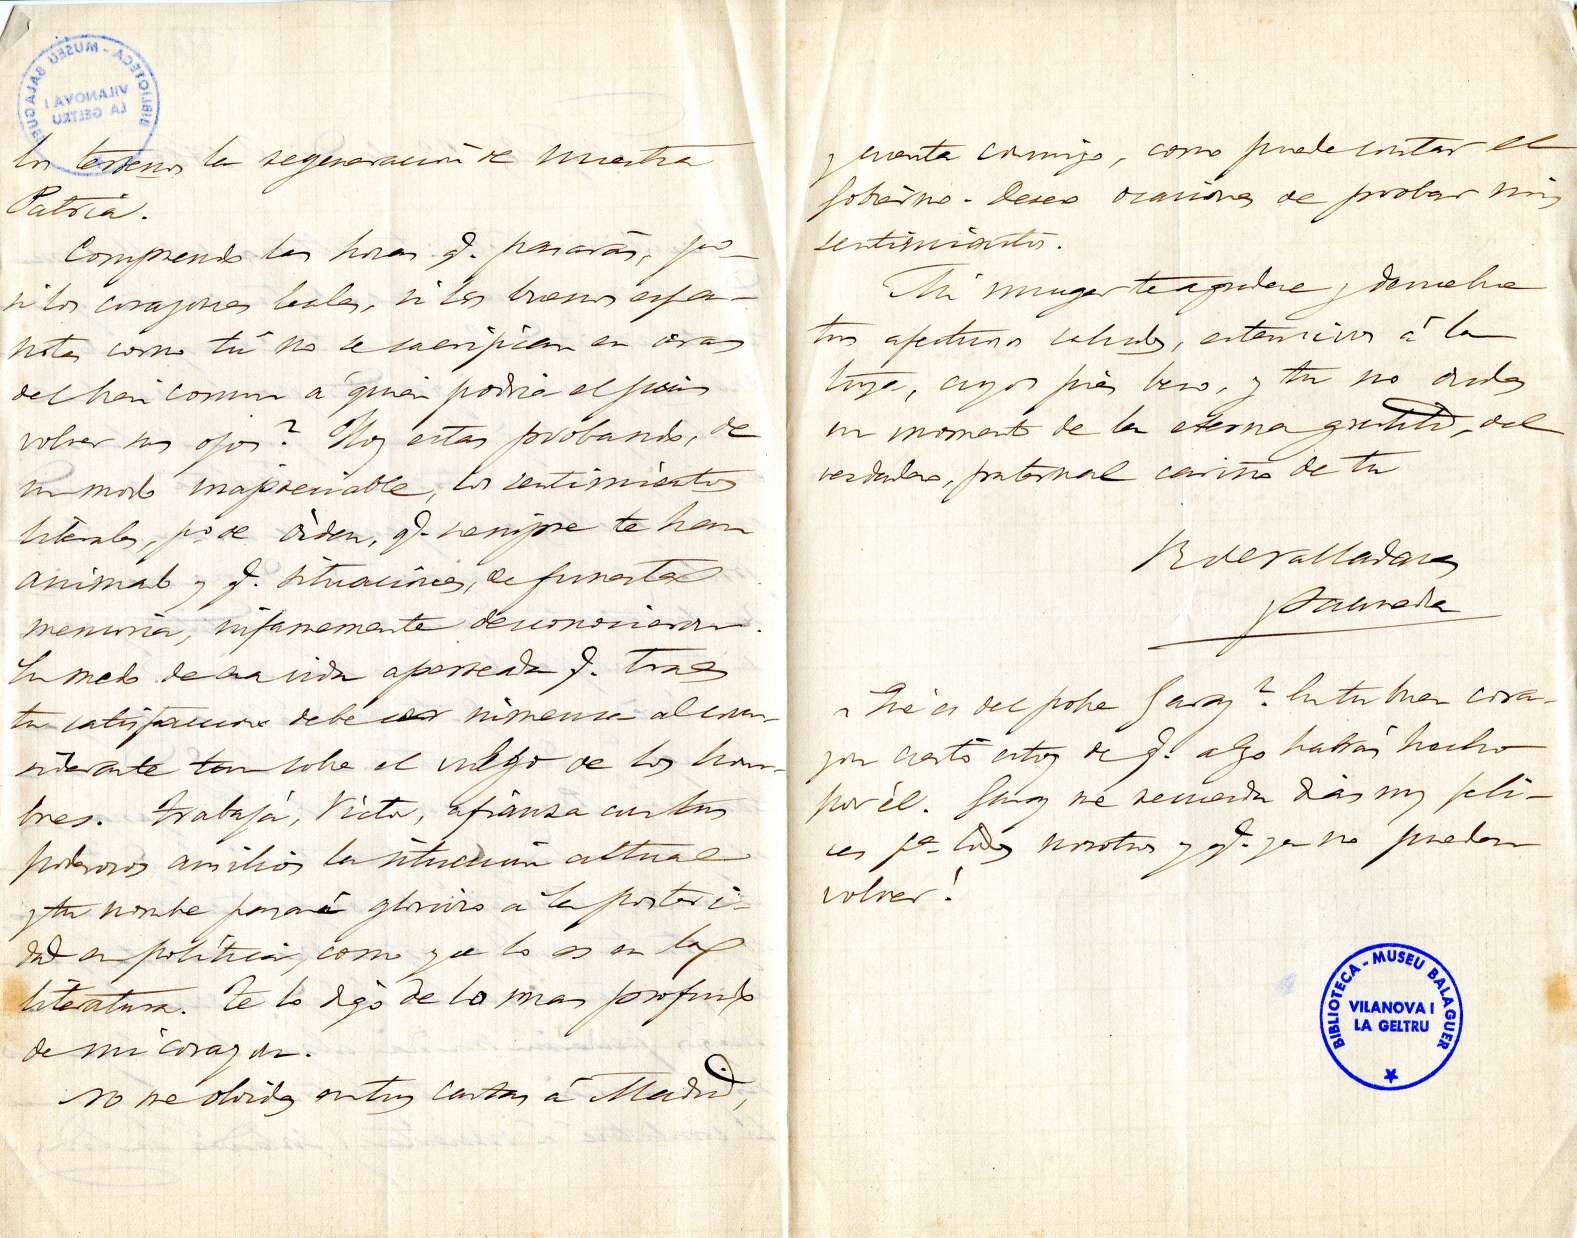 los terrenos la regeneracion de nuestra
Patria.
Comprendo las horas q. pasarás, pero
si los corazones leales, si los buenos españo-
notes como tú no se sacrifican en aras
del bien comun a quien podria el pais
volver sus ojos? Hoy estas probando, de
un modo inapreciable, los sentimientos
liberales, pº de órden, q. siempre te han
animado y q. situaciones, de funesta
memoria, infamemente desconocieron.
En medio de esa vida aperreada q. traes
tu satisfaccion debe ser inmensa al con-
siderarte tan sobre el vulgo de los hom-
bres. Trabaja, Victor, afianza con tus
poderosos ausilios la situacion actual
y tu nombre pasará glorioso á la posteri-
dad en politica, como ya lo es en la
literatura. Te lo digo de lo mas profundo
de mi corazon.
No me olvides en tus cartas á Madrid,
y cuenta conmigo, como puede contar el
Gobierno. Deseo ocasiones de probar mis
sentimientos.
Mi muger te agradece y devuelve
tus afectuosos saludos, estensivos á la
tuya, cuyos piés beso, y tu no dudes
un momento de la eterna gratitud, del
verdadero, fraternal cariño de tu
R de Valladares
y Saavedra
¿Qué es del pobre Garay? En tu buen cora-
zon cierto estoy de q. algo habrás hecho
por él. Garay me recuerda dias muy feli-
ces pª todos nosotros y q. ya no pueden
volver!
BIBLIOTECA - MUSEU BALAGUER
VILANOVA I
LA GELTRU